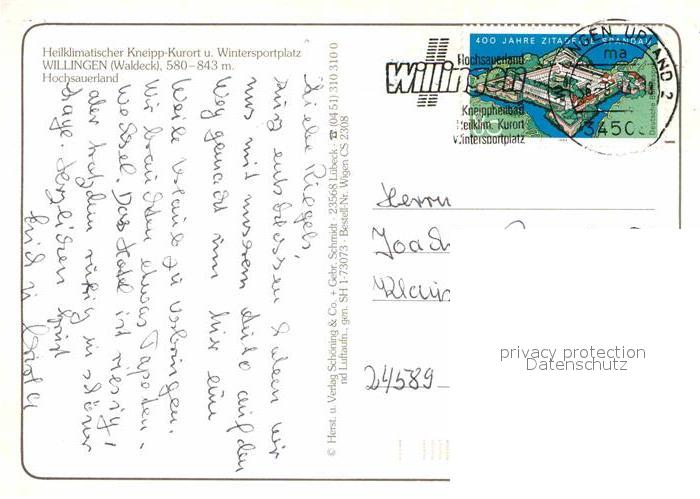 Heilklimatischer Kneipp-Kurort u. Wintersportplatz
WILLINGEN (Waldeck), 580–843 m.
Hochsauerland
Liebe
kurz entschlossen haben wir
uns mit unserem Auto auf den
Weg gemacht um hier eine
Weile Urlaub zu verbringen.
Wir brauchten etwas Tapeten-
wechsel. Das Hotel ist riesig,
aber trotzdem ruhig in schöner
Lage. Herzlichen Gruß
© Herst. u. Verlag Schöning & Co. + Gebr. Schmidt · 23568 Lübeck · ☎ (04 51) 310 310 0
nd Luftaufn., gen. SH 1-73073 · Bestell-Nr. Wigen CS 2308
Hochsauerland
willingen
Kneippheilbad
Heilklim. Kurort
Wintersportplatz
400 JAHRE ZITADELLE SPANDAU
Deutsche Bundespost
WILLINGEN, UPLAND 2
ma
3450
Herrn
24589
privacy protection
Datenschutz